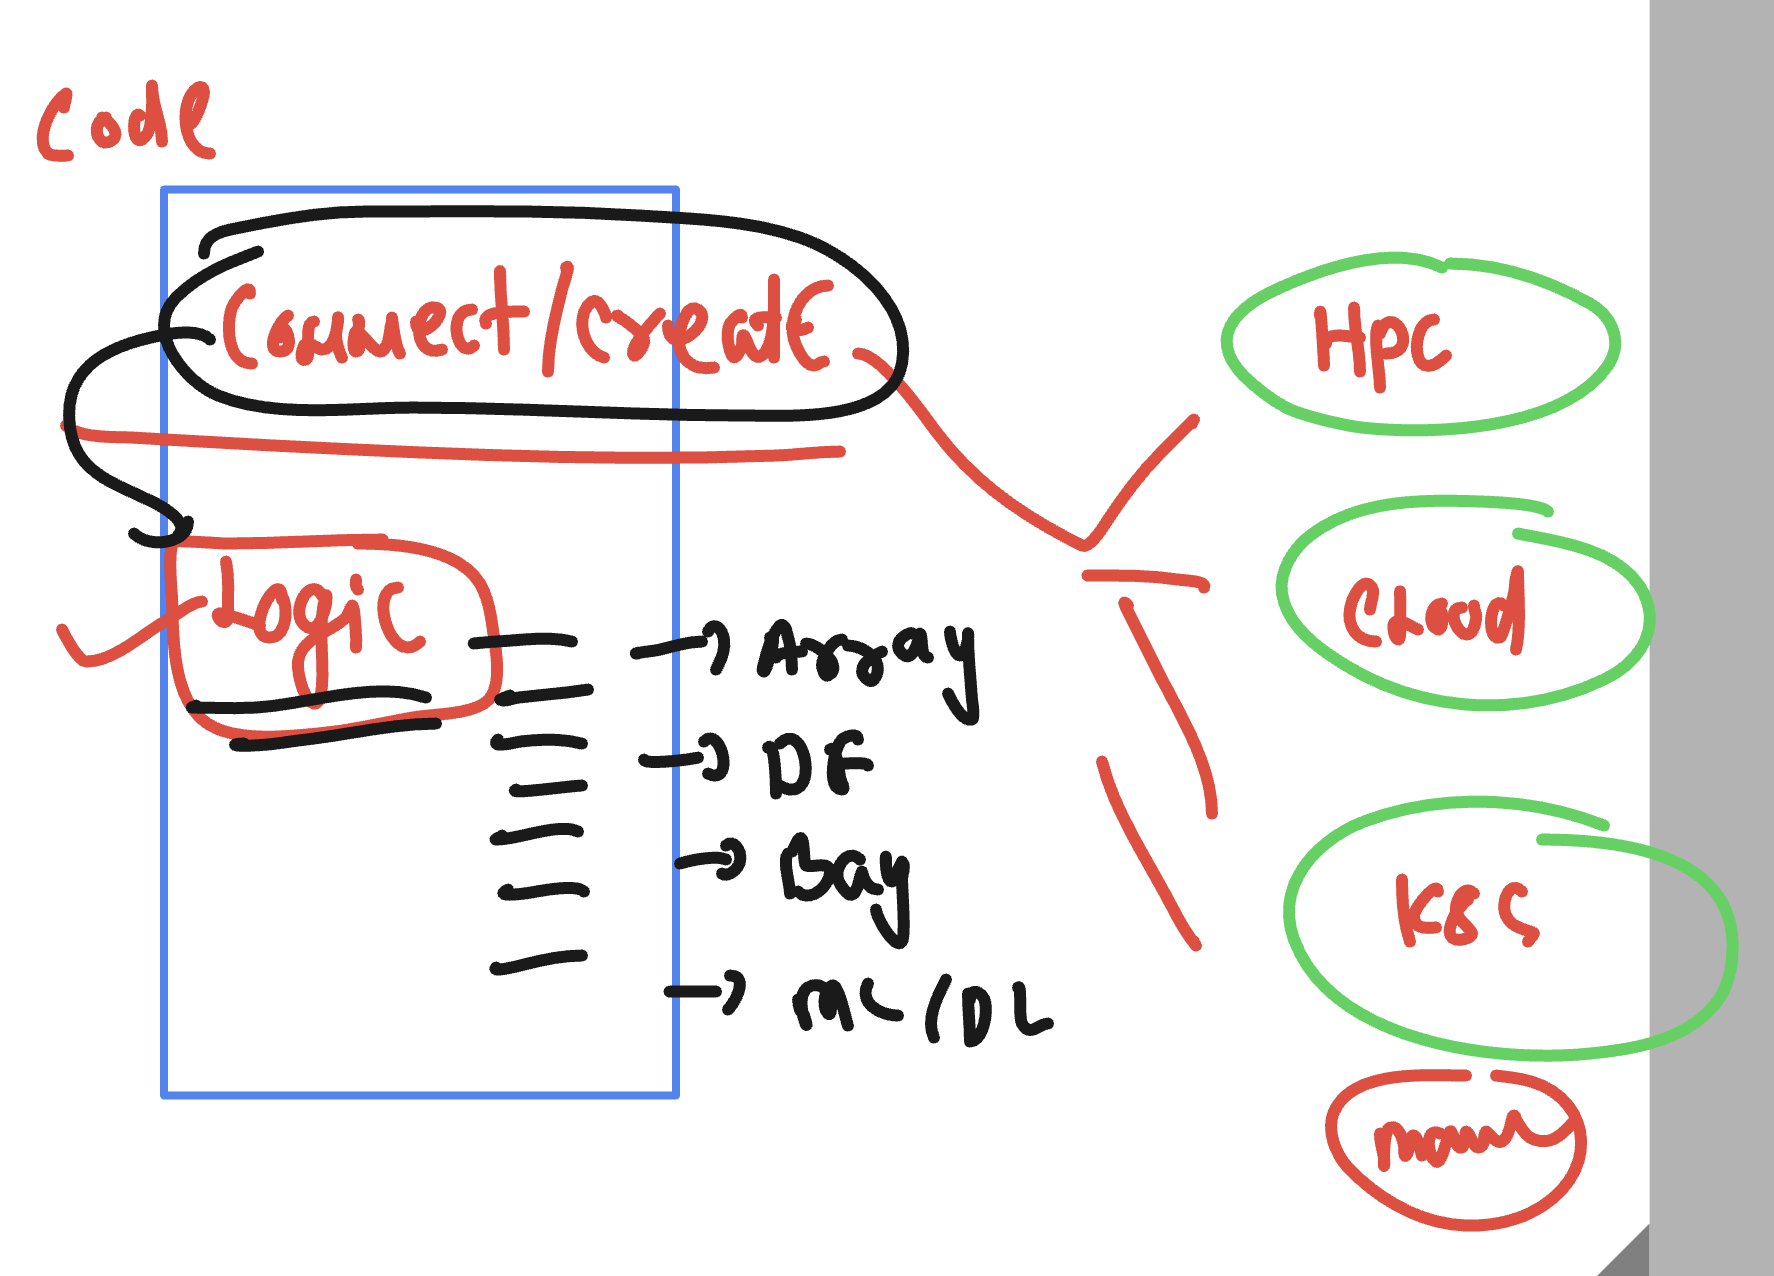 Code
Connect/Create
Logic
Array
DF
Bag
ML/DL
HPC
Cloud
K8S